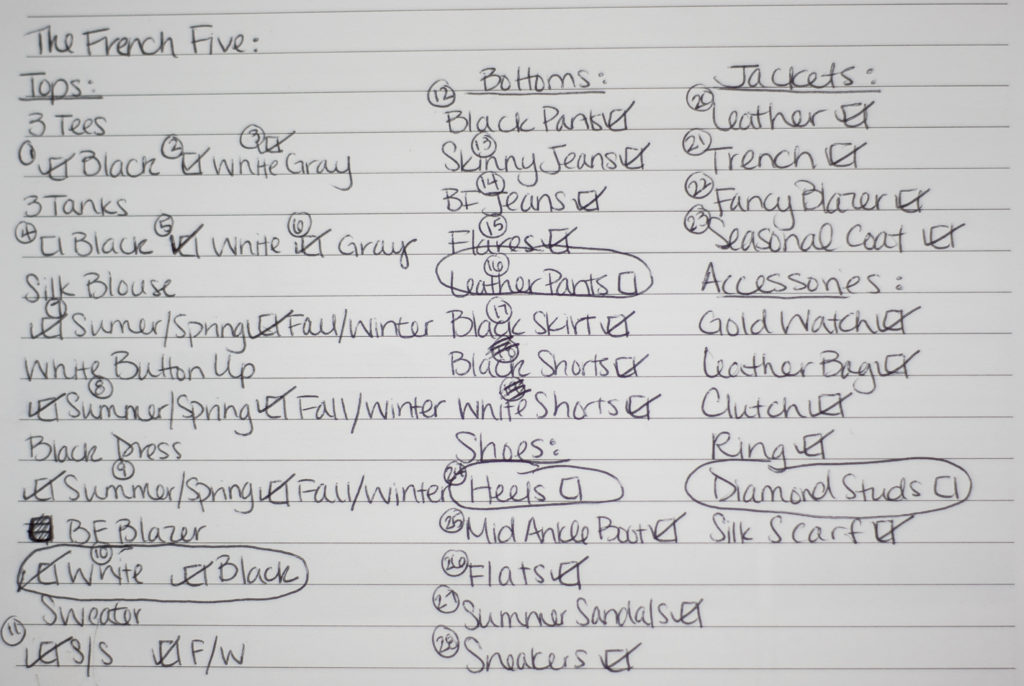 The French Five:
Tops:
3 Tees
① ☑ Black ② ☑ White ③ ☑ Gray
3 Tanks
④ ☐ Black ⑤ ☑ White ⑥ ☑ Gray
Silk Blouse
⑦ ☑ Sumer/Spring ☑ Fall/Winter
White Button Up
⑧ ☑ Summer/Spring ☑ Fall/Winter
Black Dress
⑨ ☑ Summer/Spring ☑ Fall/Winter
BF Blazer
⑩ ☑ White ☑ Black
Sweater
⑪ ☑ S/S ☑ F/W
Bottoms:
⑫ Black Pants ☑
⑬ Skinny Jeans ☑
⑭ BF Jeans ☑
⑮ Flares ☑
⑯ Leather Pants ☐
⑰ Black Skirt ☑
Black Shorts ☑
White Shorts ☑
Shoes:
㉔ Heels ☐
㉕ Mid Ankle Boot ☑
㉖ Flats ☑
㉗ Summer Sandals ☑
㉘ Sneakers ☑
Jackets:
⑳ Leather ☑
㉑ Trench ☑
㉒ Fancy Blazer ☑
㉓ Seasonal Coat ☑
Accessories:
Gold Watch ☑
Leather Bag ☑
Clutch ☑
Ring ☑
Diamond Studs ☐
Silk Scarf ☑